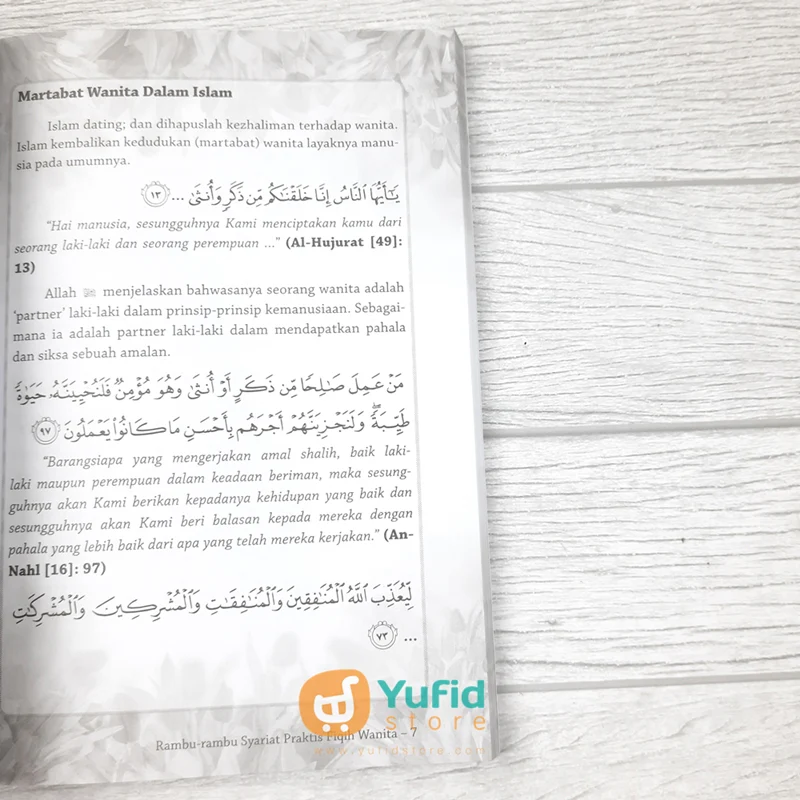 Martabat Wanita Dalam Islam
Islam dating; dan dihapuslah kezhaliman terhadap wanita.
Islam kembalikan kedudukan (martabat) wanita layaknya manu-
sia pada umumnya.
يَـٰٓأَيُّهَا ٱلنَّاسُ إِنَّا خَلَقْنَـٰكُم مِّن ذَكَرٍ وَأُنثَىٰ ... ١٣
“Hai manusia, sesungguhnya Kami menciptakan kamu dari
seorang laki-laki dan seorang perempuan ...” (Al-Hujurat [49]:
13)
Allah ﷻ menjelaskan bahwasanya seorang wanita adalah
‘partner’ laki-laki dalam prinsip-prinsip kemanusiaan. Sebagai-
mana ia adalah partner laki-laki dalam mendapatkan pahala
dan siksa sebuah amalan.
مَنْ عَمِلَ صَـٰلِحًا مِّن ذَكَرٍ أَوْ أُنثَىٰ وَهُوَ مُؤْمِنٌ فَلَنُحْيِيَنَّهُۥ حَيَوٰةً
طَيِّبَةً ۖ وَلَنَجْزِيَنَّهُمْ أَجْرَهُم بِأَحْسَنِ مَا كَانُوا۟ يَعْمَلُونَ ٩٧
“Barangsiapa yang mengerjakan amal shalih, baik laki-
laki maupun perempuan dalam keadaan beriman, maka sesung-
guhnya akan Kami berikan kepadanya kehidupan yang baik dan
sesungguhnya akan Kami beri balasan kepada mereka dengan
pahala yang lebih baik dari apa yang telah mereka kerjakan.” (An-
Nahl [16]: 97)
لِّيُعَذِّبَ ٱللَّهُ ٱلْمُنَـٰفِقِينَ وَٱلْمُنَـٰفِقَـٰتِ وَٱلْمُشْرِكِينَ وَٱلْمُشْرِكَـٰتِ
... ٧٣
Yufid
store
www.yufidstore.com
Rambu-rambu Syariat Praktis Fiqih Wanita – 7